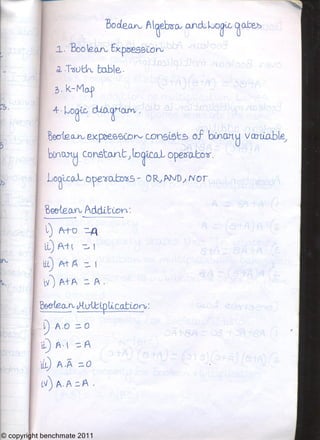 Bodean Algebra and Logic gates
1. Boolean Expression
2. Truth table.
3. K-Map
4. Logic diagram.
Boolean expression consists of binary variable,
binary constant, logical operator.
Logical operators - OR, AND, NOT
Boolean Addition:
i) A+0 = A
ii) A+1 = 1
iii) A+A̅ = 1
iv) A+A = A.
Boolean Multiplication:
i) A.0 = 0
ii) A.1 = A
iii) A.A̅ = 0
iv) A.A = A.
© copyright benchmate 2011